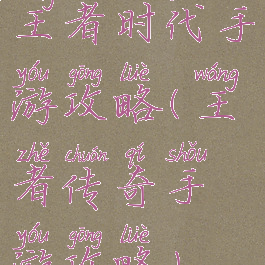 王者时代手
yóu gōng lüè wáng
游攻略(王
zhě chuán qí shǒu
者传奇手
yóu gōng lüè
游攻略)